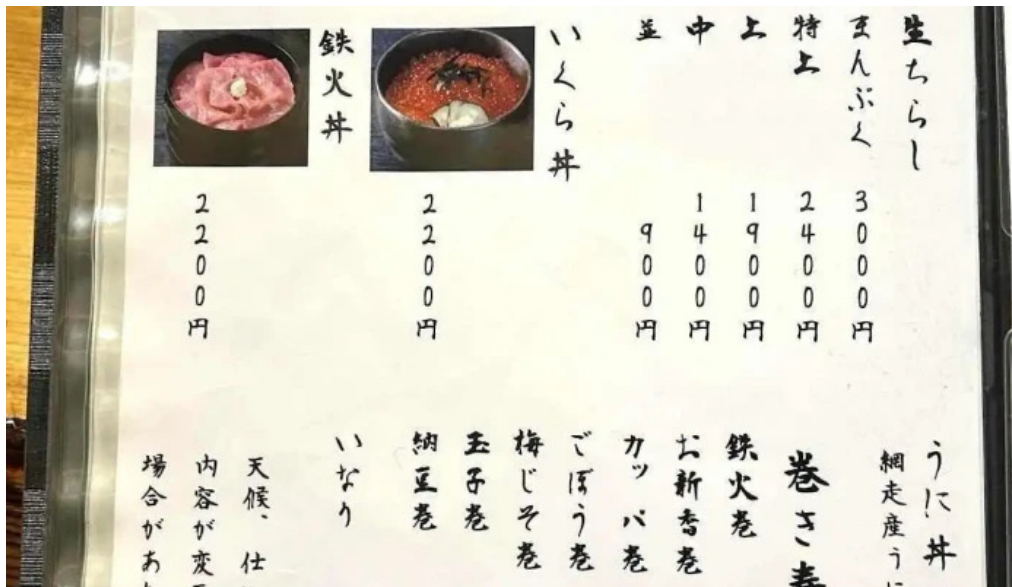 生ちらし
まんぷく 3000円
特上 2400円
上 1900円
中 1400円
並 900円
いくら丼 2200円
鉄火丼 2200円
うに丼
網走産う
巻き
鉄火巻
お新香巻
カッパ巻
ごぼう巻
梅じそ巻
玉子巻
納豆巻
いなり
天候、仕
内容が変
場合があ